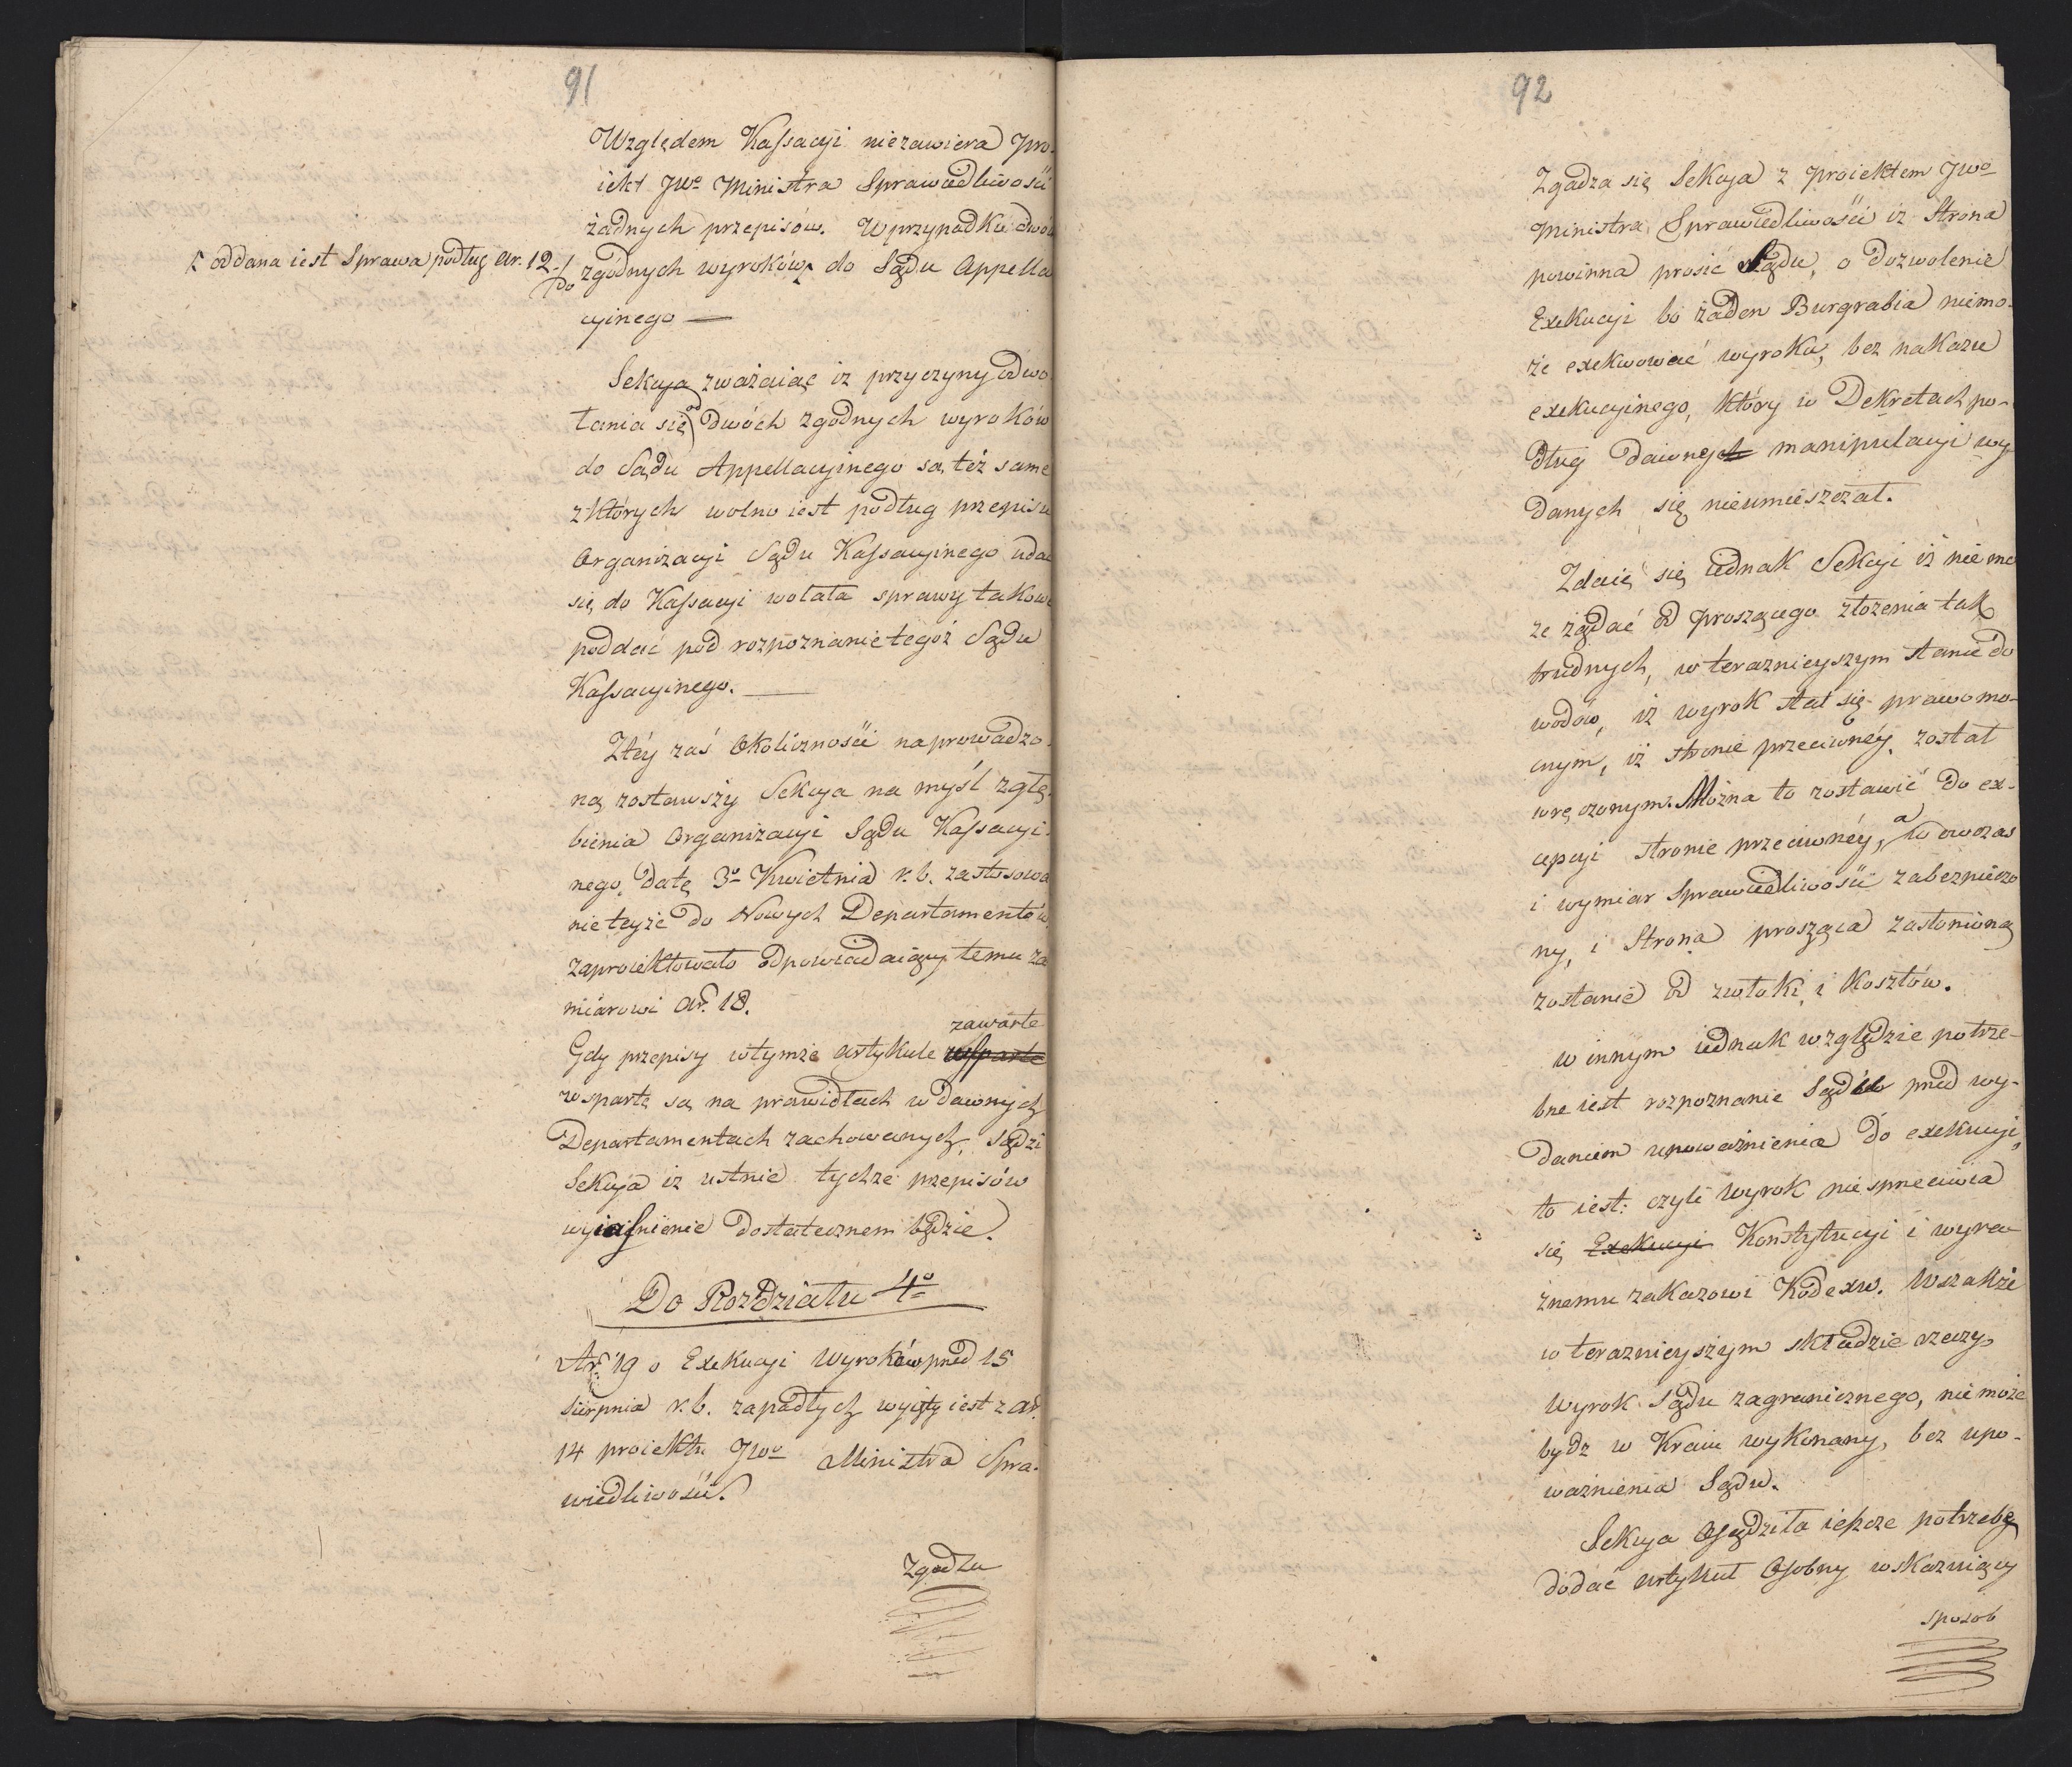 91
Względem Kassacyi niezawiera Pro-
iekt JWo Ministra Sprawiedliwości
żadnych przepisów. W przypadku dwóch
⌈ oddana iest Sprawa podług Ar. 12. /do
zgodnych wyroków⌈ do Sądu Appella
cyinego —
Sekcya zważaiąc iż przyczyny odwo
łania się od dwóch zgodnych wyroków
do Sądu Appellacyinego są też same
z których wolno iest podług przepisu
Organizacyi Sądu Kassacyinego udać
się do Kassacyi wolała sprawy takowe
poddać pod rozpoznanie tegoż Sądu
Kassacyinego. —
Z téy zaś Okoliczności naprowadzo-
ną zostawszy Sekcya na myśl zgłę-
bienia Organizacyi Sądu Kassacyi-
nego, datę 3o Kwietnia r. b. zastosowa
nie teyże do Nowych Departamentów
zaproiektowało odpowiadaiący temu za
miarowi Ar. 18.
zawarte
Gdy przepisy w tymże artykule wsparte
wsparte są na prawidłach w dawnych
Departamentach zachowanych, Sądzi
Sekcya iż ustnie tychże przepisów
wyiaśnienie dostatecznem będzie.
Do Rozdziału 4o
Art. 19 o Exekucyi Wyroków przed 15
Sierpnia r. b. zapadłych wyięty iest z Ar.
14 proiektu JWo Ministra Spra-
wiedliwości.
Zgadza
92
Zgadza się Sekcya z proiektem JWo
Ministra Sprawiedliwości iż Strona
powinna prosić Sądu, o dozwolenie
Exekucyi bo żaden Burgrabia niemo-
że exekwować wyroku, bez nakazu
exekucyinego, który w Dekretach po-
dług dawnej manipulacyi wy
danych się nieumieszczał.
Zdaie się iednak Sekcyi iż nie mo
że żądać od proszącego złożenia tak
trudnych, w teraznieyszym stanie do
wodów, iż wyrok stał się prawomo-
cnym, iż stronie przeciwnéy został
wręczonym. Można to zostawić do ex-
cepcyi stronie przeciwnéy, a wowczas
i wymiar Sprawiedliwości zabezpieczo
ny, i Strona prosząca zasłonioną
zostanie od zwłoki, i kosztów.
w innym iednak względzie potrze-
bne iest rozpoznanie Sądów przed wy-
daniem upoważnienia do exekucyi,
to iest: czyli wyrok nie sprzeciwia
się Exekucyi Konstytucyi i wyra-
źnemu zakazowi Kodexu. Wszakże
w teraznieyszym składzie rzeczy
Wyrok Sądu zagranicznego, nie może
bydz w Kraiu wykonany, bez upo-
ważnienia Sądu.
Sekcya Osądziła ieszcze potrzebę
dodać artykuł Osobny wskazuiący
sposób